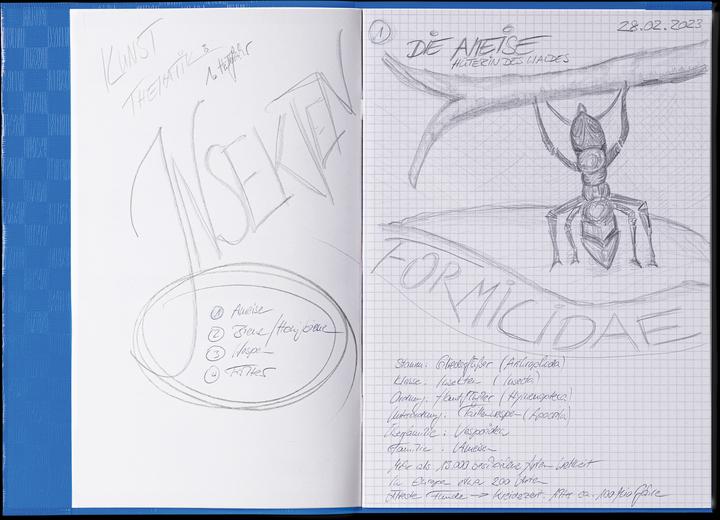 KUNST
THEMATIK
INSEKTEN
1 Ameise
2 Biene/Honigbiene
3 Wespe
4
1
28.02.2023
DIE AMEISE
HÜTERIN DES WALDES
FORMICIDAE
Stamm: Gliederfüßer (Arthropoda)
Klasse: Insekten (Insecta)
Ordnung: Hautflügler (Hymenoptera)
Unterordnung: Taillenwespen (Apocrita)
Überfamilie: Vespoidea
Familie: Ameisen
Mehr als 13.000 Arten weltweit
In Europa etwa 200 Arten
Älteste Funde → Kreidezeit, ca. 100 Mio Jahre